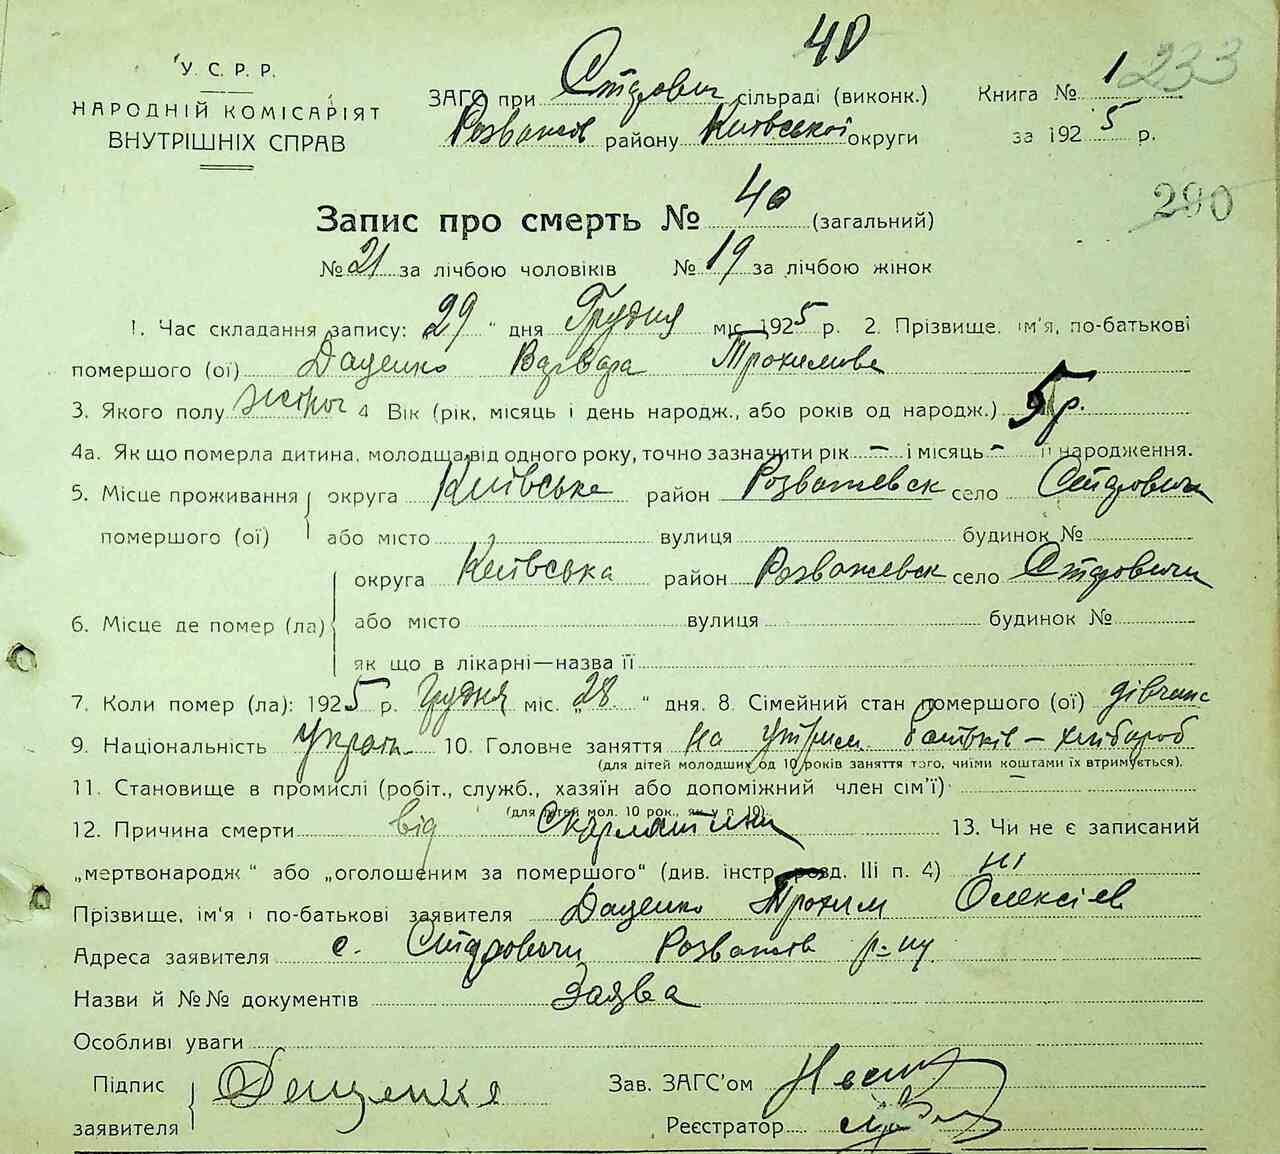 40
У. С. Р. Р.
НАРОДНІЙ КОМІСАРІЯТ
ВНУТРІШНІХ СПРАВ
ЗАГС при Старович сільраді (виконк.)
Розважев району Київської округи
Книга № 1 233
за 1925 р.
290
Запис про смерть № 40 (загальний)
№ 21 за лічбою чоловіків № 19 за лічбою жінок
1. Час складання запису: 29 " дня Грудня міс. 1925 р. 2. Прізвище, ім'я, по-батькові
помершого (ої) Даценко Варвара Трохимова
3. Якого полу жіноч 4 Вік (рік, місяць і день народж., або років од народж.) 5 р.
4а. Як що померла дитина, молодща від одного року, точно зазначити рік – і місяць – її народження.
5. Місце проживання округа Київське район Розважевск село Старовичи
помершого (ої) або місто вулиця будинок №
округа Київська район Розважевск село Старовичи
6. Місце де помер (ла) або місто вулиця будинок №
як що в лікарні—назва її
7. Коли помер (ла): 1925 р. Грудня міс. „28 " дня. 8. Сімейний стан помершого (ої) дівчина
9. Національність Україн. 10. Головне заняття на утрим. батьків – хлібороб
(для дітей молодших од 10 років заняття того, чиїми коштами їх втримується).
11. Становище в промислі (робіт., служб., хазяїн або допоміжний член сім'ї) –
(для дітей мол. 10 рок., як у п. 10)
12. Причина смерти від Скарлатини 13. Чи не є записаний
„мертвонародж" або „оголошеним за помершого" (див. інстр. розд. III п. 4) ні
Прізвище, ім'я і по-батькові заявителя Даценко Трохим Олексієв
Адреса заявителя с. Старовичи Розважев р-ну
Назви й №№ документів Заява
Особливі уваги
Підпис
заявителя Даценко
Зав. ЗАГС'ом
Реєстратор